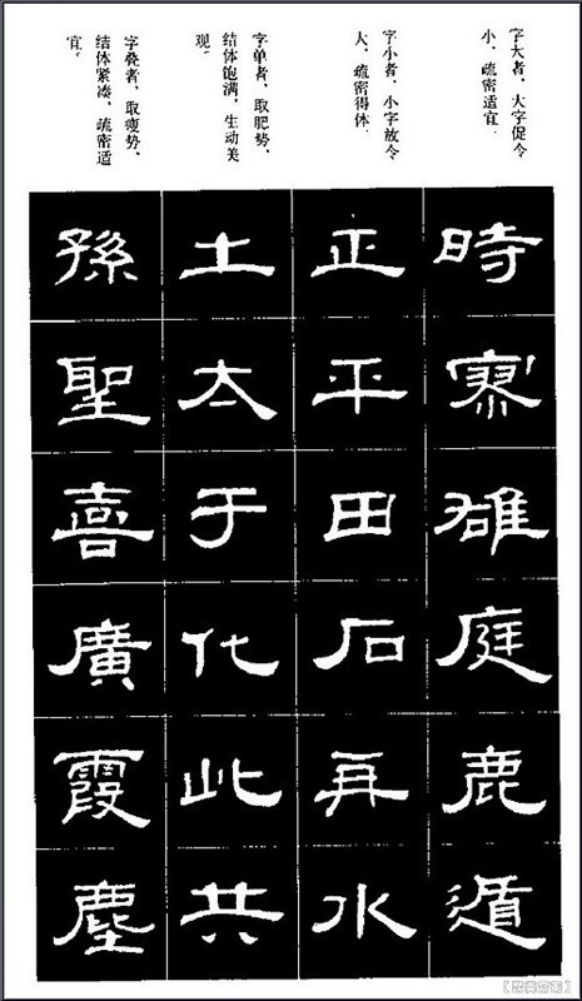 字大者，大字促令
小，疏密适宜。
時寮雄庭鹿遁
字小者，小字放令
大，疏密得体。
正平田石再水
字单者，取肥势，
结体饱满，生动美
观。
土太于化此共
字叠者，取瘦势，
结体紧凑，疏密适
宜。
孫聖喜廣霞塵